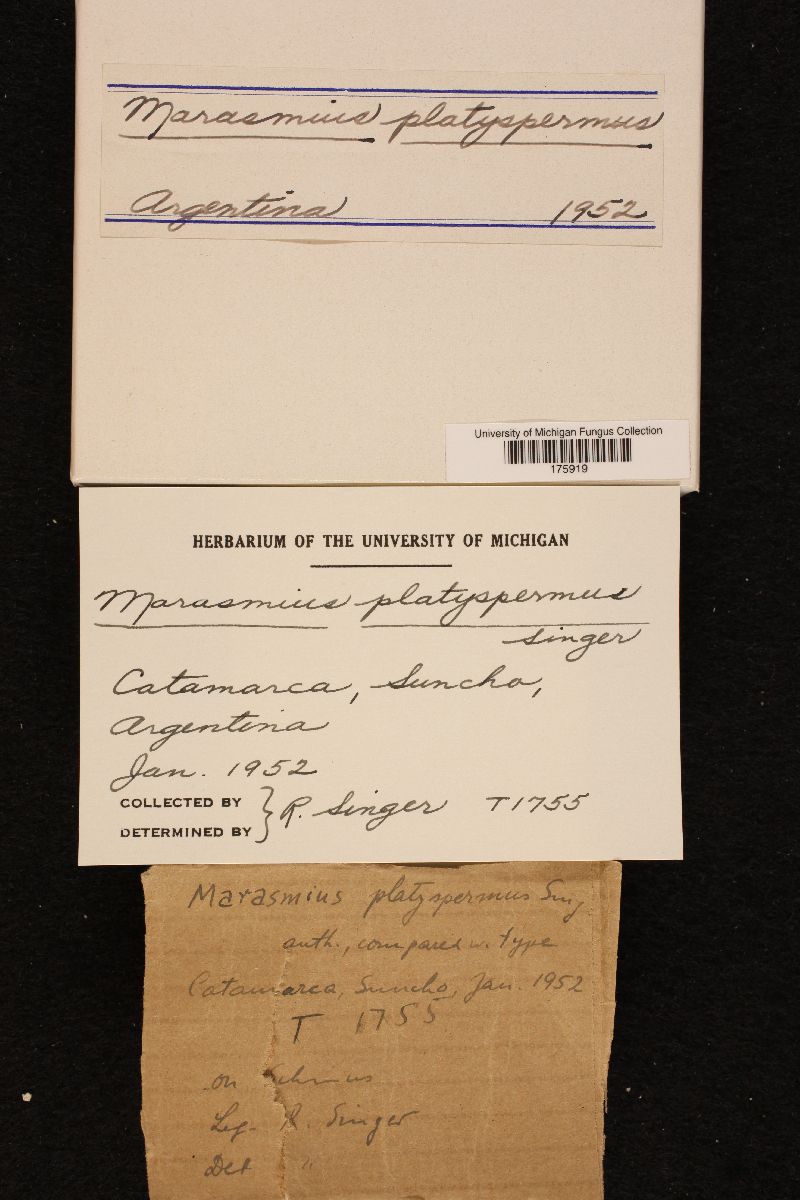 Marasmius platyspermus
Argentina 1952
University of Michigan Fungus Collection
175919
HERBARIUM OF THE UNIVERSITY OF MICHIGAN
Marasmius platyspermus
Singer
Catamarca, Suncho,
Argentina
Jan. 1952
COLLECTED BY
DETERMINED BY } R. Singer T1755
Marasmius platyspermus Sing.
auth., compared w. type
Catamarca, Suncho, Jan. 1952
T 1755
on Schinus
Leg. R. Singer
Det "